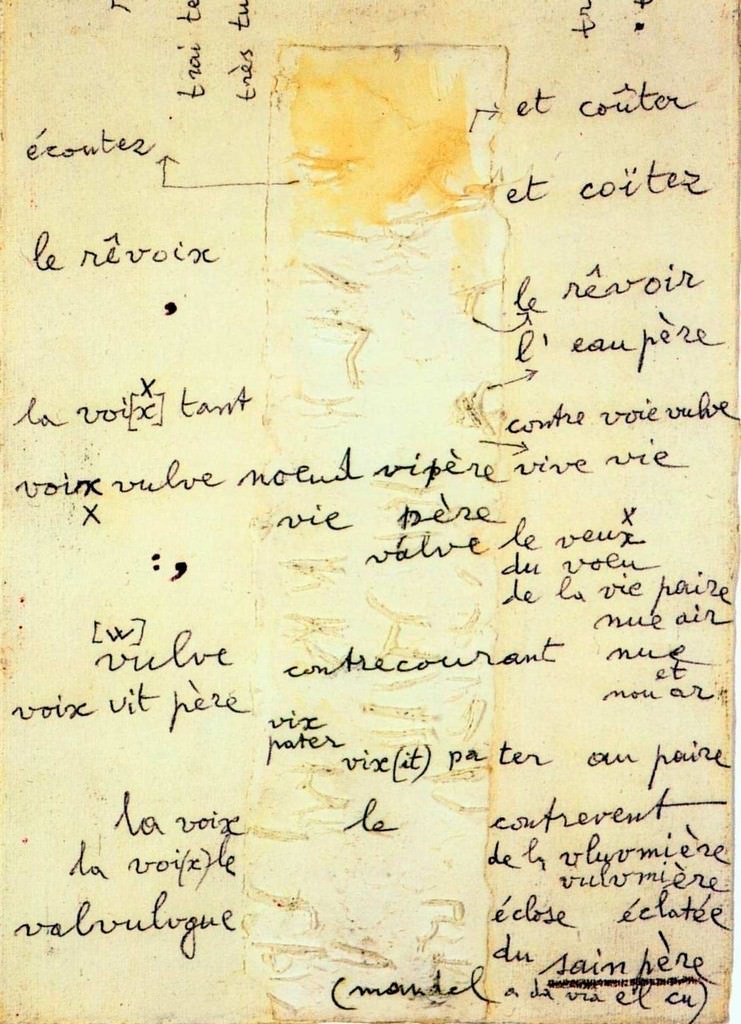 trai te
très tu
et coûter
écoutez
et coïtez
le rêvoix
le rêvoir
,
l' eau père
x
la voi[x] tant
contre voie vulve
voix vulve noeud vipère vive vie
x
vie père
x
valve le veux
du voeu
:,
de la vie paire
nue air
[w]
vulve contrecourant nue
et
voix vit père nou ar
vix
pater
vix(it) pa ter au paire
la voix le contrevent
la voi(x)le de la vluvmière
vulvmière
valvulvgue éclose éclatée
du sain père
(mandel a da vra el cu)